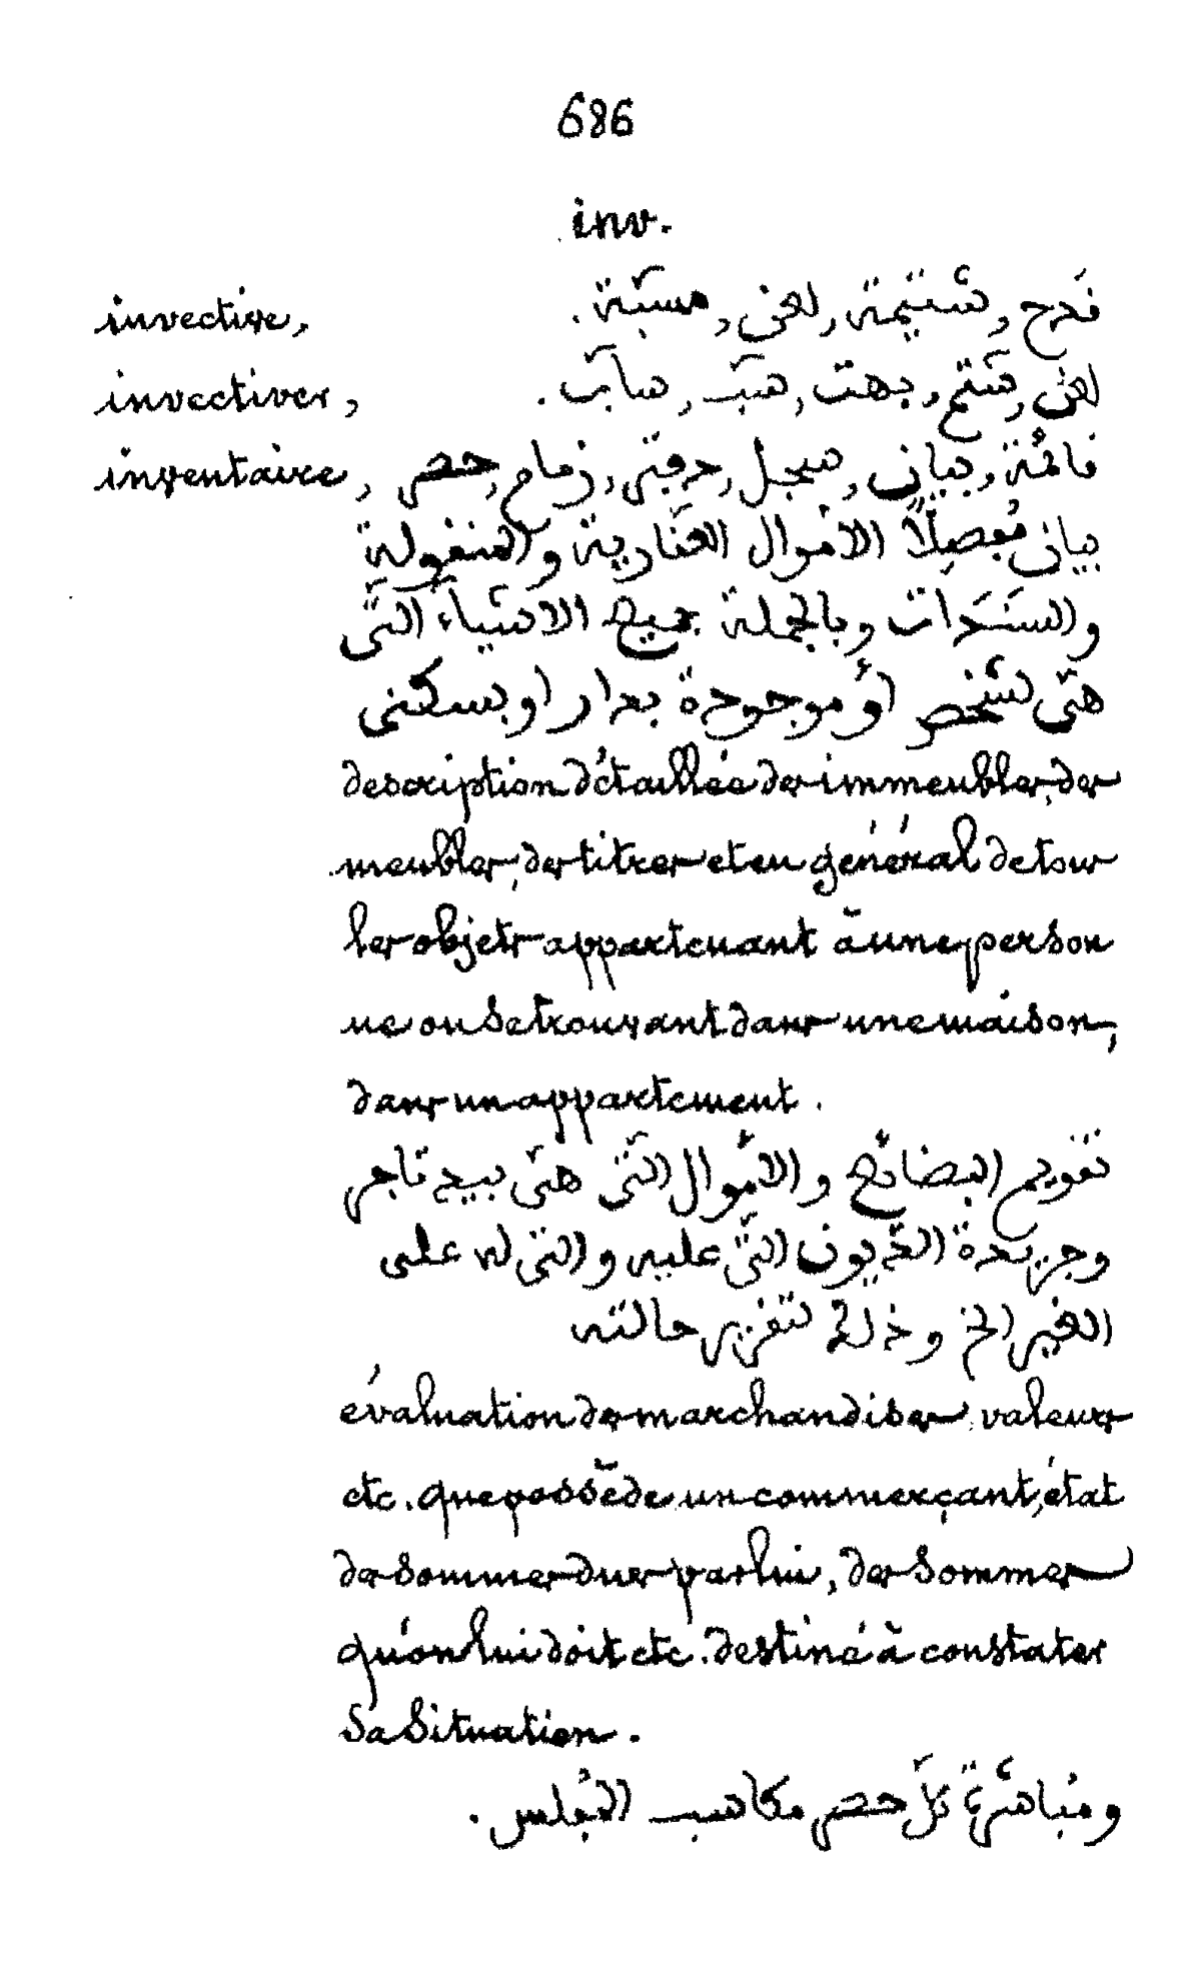 686
inv.
invective, قدح, شتيمة, لعن, مسبّة.
invectiver, لعن, شتم, بهت, سبّ, سابّ.
inventaire, قائمة, بيان, سجل, دفتر, زمام, حصر
بيان مفصلاً الاموال العقارية والمنقولة
والسندات وبالجملة جميع الاشياء الّتى
هى لشخص أو موجودة بدار او بسكنى
description détaillée des immeubles, des
meubles, des titres et en général de tous
les objets appartenant à une person
ne ou se trouvant dans une maison,
dans un appartement.
تقويم البضائع والاموال الّتى هى بيد تاجر
وجريدة الدّيون الّتى عليه والتى له على
الغير الخ وذلك لتقرير حالته
évaluation des marchandises, valeurs
etc. que possède un commerçant, état
des sommes dues par lui, des sommes
qu'on lui doit etc. destiné à constater
sa situation.
ومباشرة كلّ حصر مكاسب المفلس.